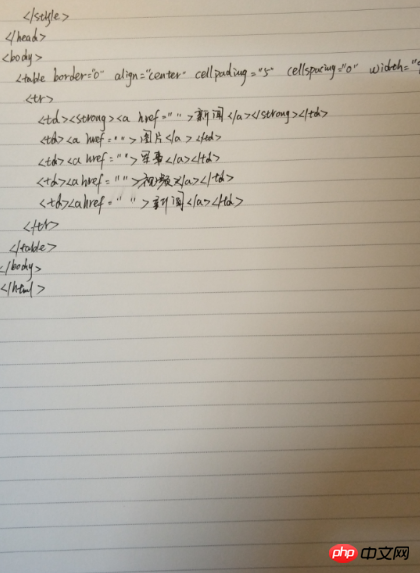 </style>
</head>
<body>
<table border="0" align="center" cellpading="5" cellspacing="0" width="
<tr>
<td><strong><a href=" ">新闻</a></strong></td>
<td><a href="">图片</a></td>
<td><a href="">军事</a></td>
<td><a href="">视频</a></td>
<td><a href=" ">新闻</a></td>
</tr>
</table>
</body>
</html>
php 中文网